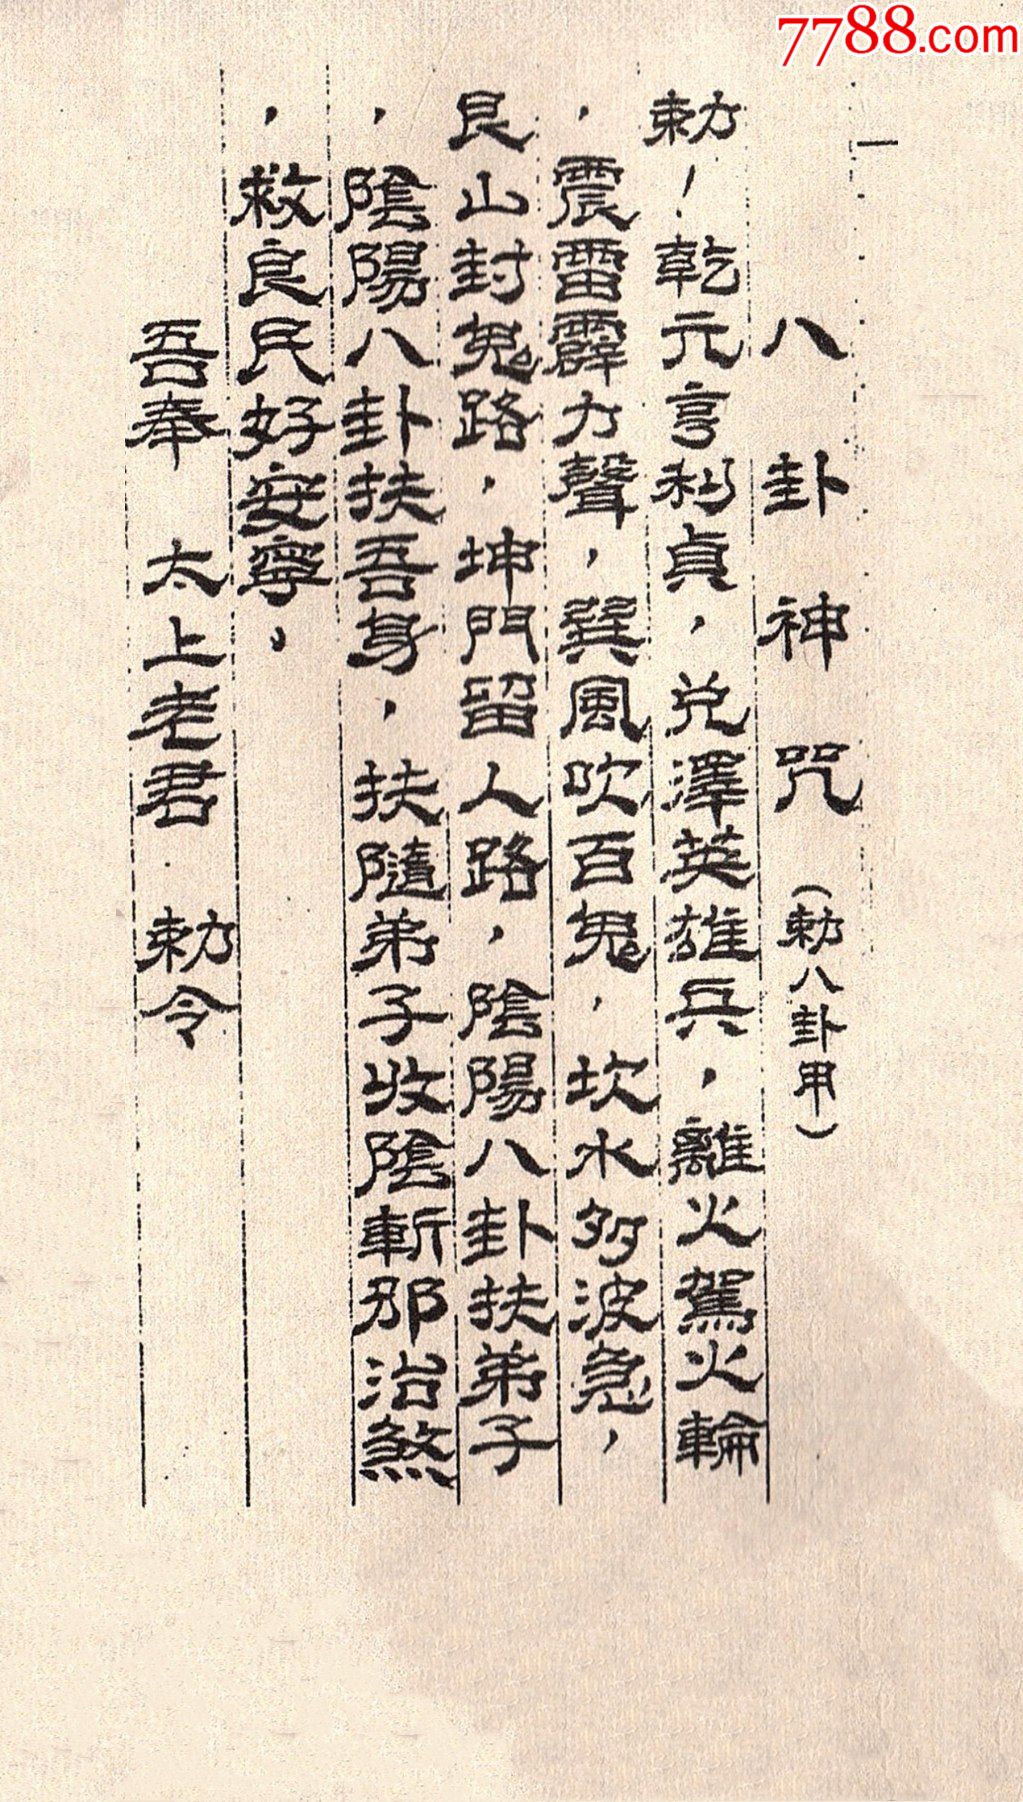 7788.com
一
八卦神咒（勅八卦甲）
勅！乾元亨利貞，兌澤英雄兵，離火駕火輪
，震雷霹力聲，巽風吹百鬼，坎水夛波急，
艮山封鬼路，坤門留人路，陰陽八卦扶弟子
，陰陽八卦扶吾身，扶隨弟子收陰斬那治煞
，救良民好安寧，
吾奉　太上老君　勅令